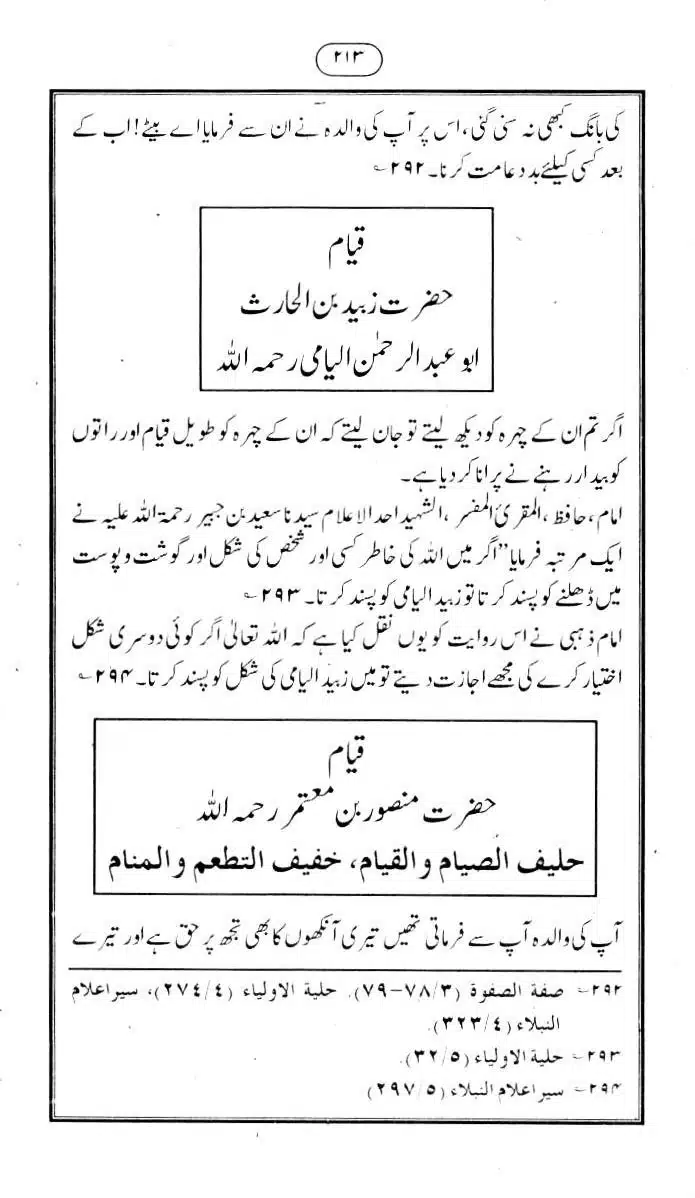 ۲۱۳
کی بانگ کبھی نہ سنی گئی، اس پر آپ کی والدہ نے ان سے فرمایا اے بیٹے! اب کے
بعد کسی کیلئے بد دعا مت کرنا۔ ۲۹۲؎
قیام
حضرت زبید بن الحارث
ابو عبد الرحمٰن الیامی رحمہ اللہ
اگر تم ان کے چہرہ کو دیکھ لیتے تو جان لیتے کہ ان کے چہرہ کو طویل قیام اور راتوں
کو بیدار رہنے نے پرانا کر دیا ہے۔
امام، حافظ، المقرئ المفسر، الشہید احد الاعلام سیدنا سعید بن جبیر رحمۃ اللہ علیہ نے
ایک مرتبہ فرمایا ”اگر میں اللہ کی خاطر کسی اور شخص کی شکل اور گوشت و پوست
میں ڈھلنے کو پسند کرتا تو زبید الیامی کو پسند کرتا۔ ۲۹۳؎
امام ذہبی نے اس روایت کو یوں نقل کیا ہے کہ اللہ تعالیٰ اگر کوئی دوسری شکل
اختیار کرے کی مجھے اجازت دیتے تو میں زبید الیامی کی شکل کو پسند کرتا۔ ۲۹۴؎
قیام
حضرت منصور بن معتمر رحمہ اللہ
حلیف الصیام والقیام، خفیف التطعم والمنام
آپ کی والدہ آپ سے فرماتی تھیں تیری آنکھوں کا بھی تجھ پر حق ہے اور تیرے
۲۹۲؎ صفة الصفوة (۳/۷۸-۷۹)۔ حلیة الاولیاء (۴/۲۷۴)، سیر اعلام
النبلاء (۴/۳۲۳)۔
۲۹۳؎ حلیة الاولیاء (۵/۳۲)۔
۲۹۴؎ سیر اعلام النبلاء (۵/۲۹۷)